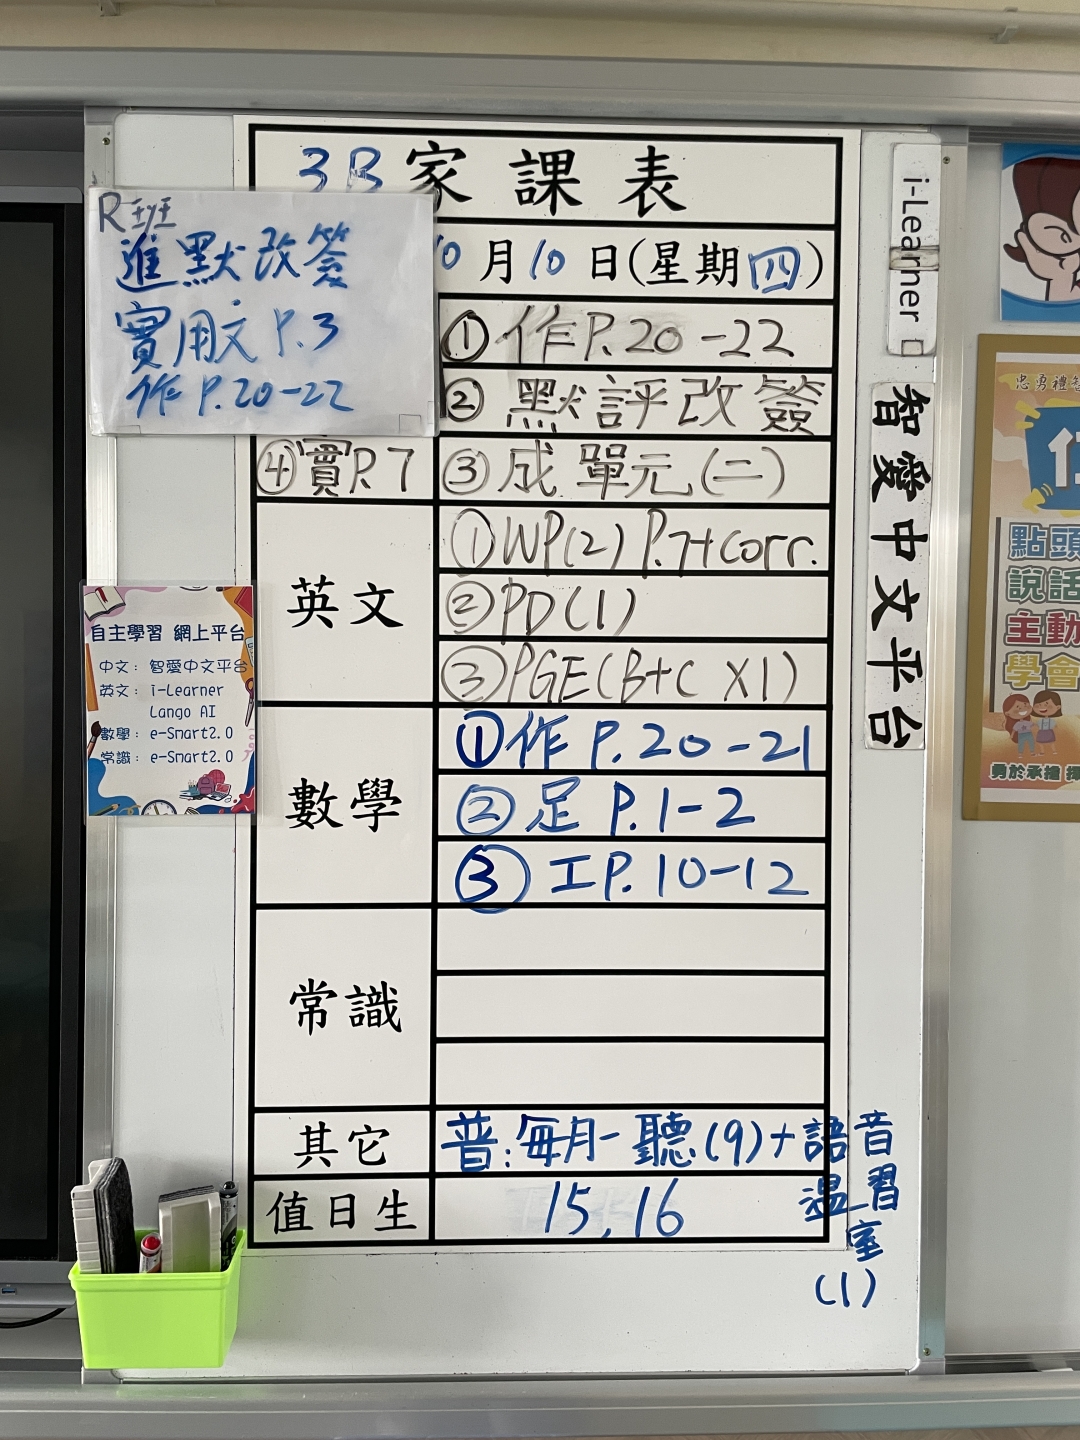 3B 家課表
R班
進默改簽
實用文 P.3
作 P.20-22
10月10日(星期四)
①作P.20-22
②默評改簽
④實P.7
③成單元(二)
英文
①WP(2) P.7+corr.
②PD(1)
③PGE(B+C X1)
數學
①作 P.20-21
②足 P.1-2
③工P.10-12
常識
其它
普:每月一聽(9)+語音
溫習
室
(1)
值日生
15,16
自主學習 網上平台
中文：智愛中文平台
英文：i-Learner
Lango AI
數學：e-Smart2.0
常識：e-Smart2.0
i-Learner
智愛中文平台
忠勇禮智
點頭
說話
主動
學會
勇於承擔